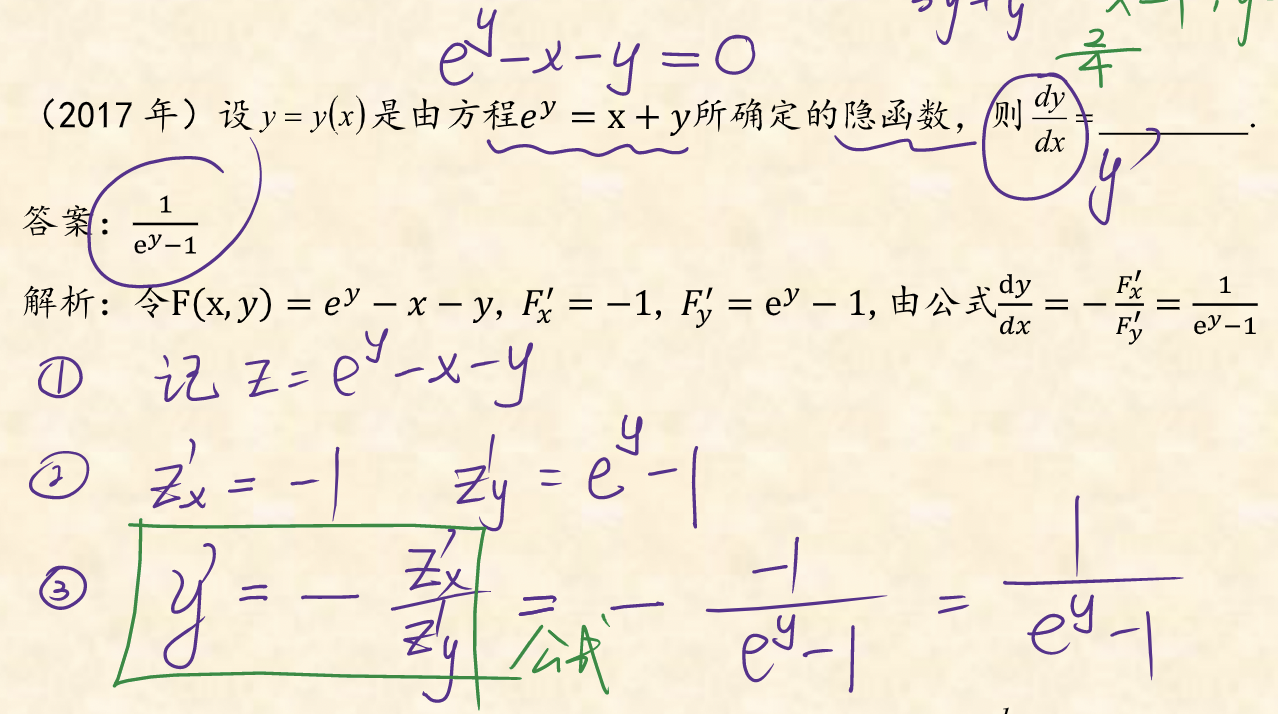 e^y-x-y=0
2/4
（2017 年）设 y = y(x) 是由方程e^y = x + y所确定的隐函数，则 dy/dx = ________.
y′
答案： 1/(e^y−1)
解析：令F(x, y) = e^y − x − y, F′_x = −1, F′_y = e^y − 1, 由公式 dy/dx = − F′_x/F′_y = 1/(e^y−1)
① 记 z = e^y - x - y
② z′_x = -1 z′_y = e^y - 1
③ y′ = - z′_x/z′_y = - -1/(e^y-1) = 1/(e^y-1)
公式